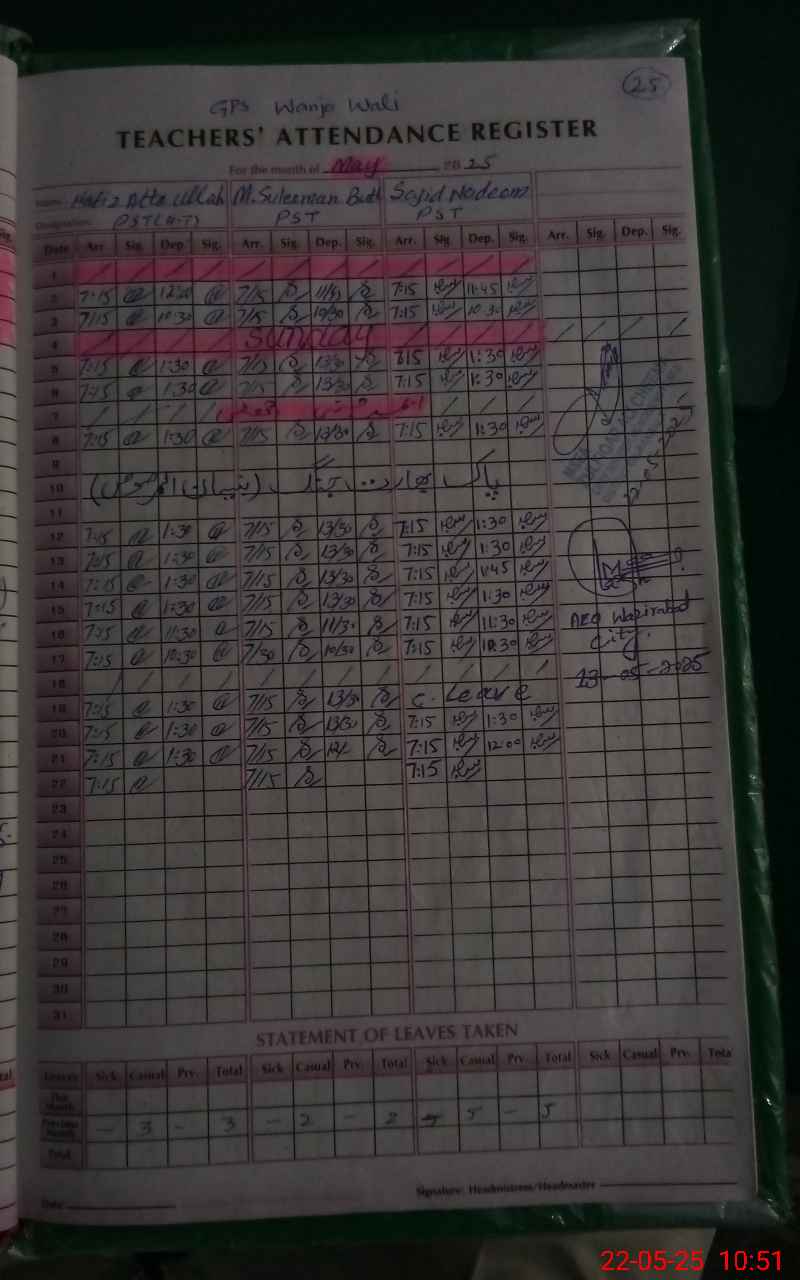 25
GPS Wanjo Wali
TEACHERS' ATTENDANCE REGISTER
For the month of May 2025
Name: Hafiz Atta Ullah M. Suleman Butt Sajid Nadeem
Designation: PST (H-T) PST PST
Date Arr. Sig. Dep. Sig. Arr. Sig. Dep. Sig. Arr. Sig. Dep. Sig. Arr. Sig. Dep. Sig.
1
2 7:15 12:20 7/15 7:15 11:45
3 7:15 10:30 7/15 10/30 7:15 10:30
4 Sunday
5 7:15 1:30 7/15 13/30 7:15 1:30
6 7:15 1:30 7/15 13/30 7:15 1:30
7
8 7:15 1:30 7/15 13/30 7:15 1:30
9
10 پاک بھارت جنگ (بنیان المرصوص)
11
12 7:15 1:30 7/15 13/30 7:15 1:30
13 7:15 1:30 7/15 13/30 7:15 1:30
14 7:15 1:30 7/15 13/30 7:15 1:45
15 7:15 1:30 7/15 13/30 7:15 1:30
16 7:15 11:30 7/15 11/30 7:15 11:30
AEO Wazirabad
City.
17 7:15 10:30 7/30 10/30 7:15 10:30
13-05-2025
18
19 7:15 1:30 7/15 13/30 C. Leave
20 7:15 1:30 7/15 13/30 7:15 1:30
21 7:15 1:30 7/15 12/ 7:15 12:00
22 7:15 7/15 7:15
23
24
25
26
27
28
29
30
31
STATEMENT OF LEAVES TAKEN
Leaves Sick Casual Prv. Total Sick Casual Prv. Total Sick Casual Prv. Total Sick Casual Prv. Total
This Month
Previous Month - 3 - 3 - 2 - 2 - 5 - 5
Total
Signature: Headmistress/Headmaster
Date:
22-05-25 10:51